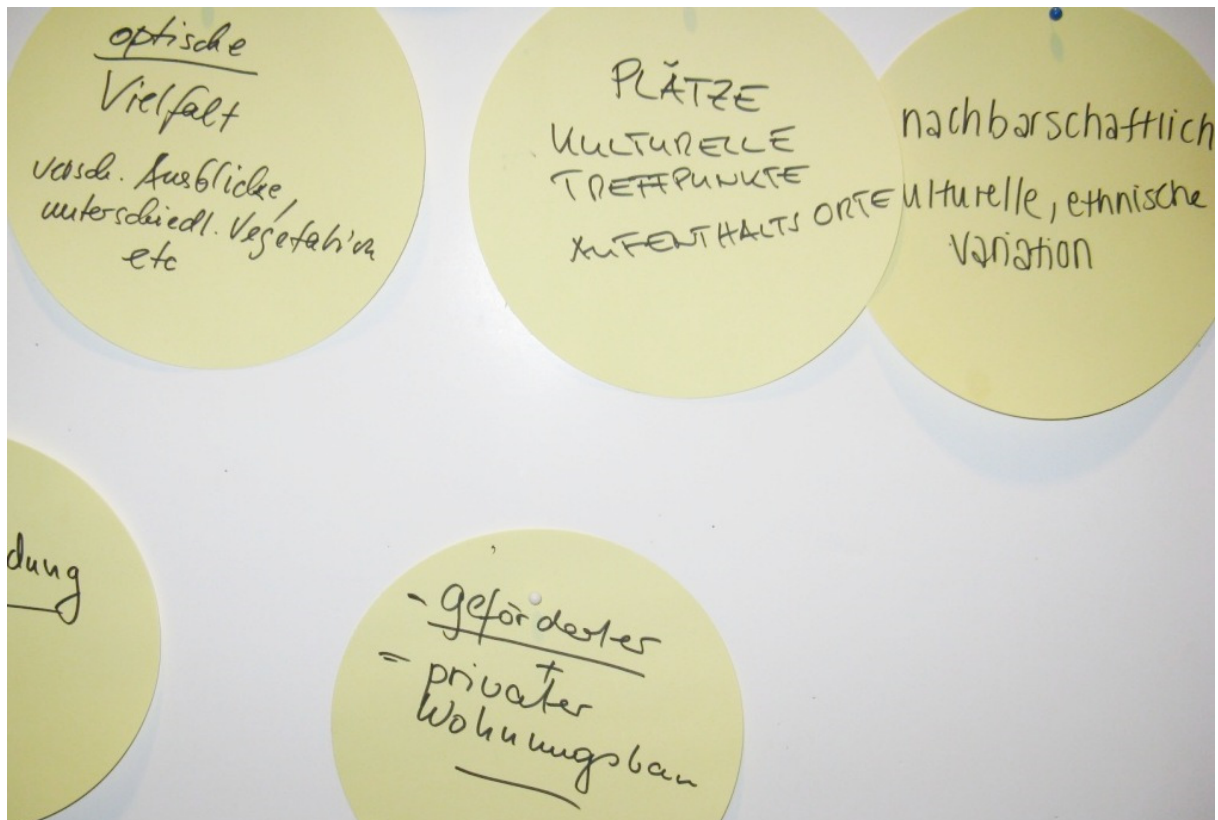 optische
Vielfalt
versch. Ausblicke,
unterschiedl. Vegetation
etc
PLÄTZE
KULTURELLE
TREFFPUNKTE
AUFENTHALTSORTE
nachbarschaftlich
ulturelle, ethnische
variation
dung
- geförderter
+
= privater
Wohnungsbau